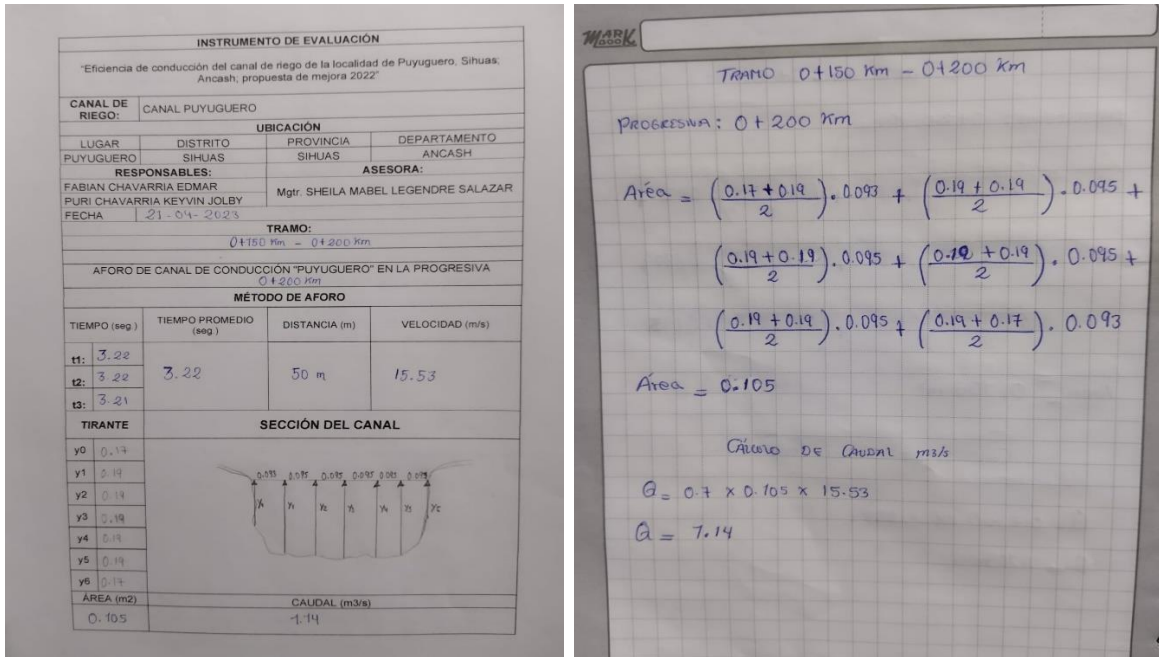 INSTRUMENTO DE EVALUACIÓN
"Eficiencia de conducción del canal de riego de la localidad de Puyuguero, Sihuas;
Ancash; propuesta de mejora 2022"
CANAL DE RIEGO: CANAL PUYUGUERO
UBICACIÓN
LUGAR DISTRITO PROVINCIA DEPARTAMENTO
PUYUGUERO SIHUAS SIHUAS ANCASH
RESPONSABLES: ASESORA:
FABIAN CHAVARRIA EDMAR
PURI CHAVARRIA KEYVIN JOLBY
Mgtr. SHEILA MABEL LEGENDRE SALAZAR
FECHA 21-04-2023
TRAMO:
0+150 Km - 0+200 Km
AFORO DE CANAL DE CONDUCCIÓN "PUYUGUERO" EN LA PROGRESIVA
0+200 Km
MÉTODO DE AFORO
TIEMPO (seg.) TIEMPO PROMEDIO (seg.) DISTANCIA (m) VELOCIDAD (m/s)
t1: 3.22
t2: 3.22 3.22 50 m 15.53
t3: 3.21
TIRANTE SECCIÓN DEL CANAL
y0 0.17
y1 0.19
y2 0.19
y3 0.19
y4 0.19
y5 0.19
y6 0.17
0.093 0.095 0.095 0.095
Y1 Y2
ÁREA (m2) CAUDAL (m3/s)
0.105 1.14
MARK BOOK
TRAMO 0+150 Km - 0+200 Km
PROGRESIVA: 0+200 Km
Area = ((0.17+0.19)/2).0.093 + ((0.19+0.19)/2).0.095 +
((0.19+0.19)/2).0.095 + ((0.19+0.19)/2).0.095 +
((0.19+0.19)/2).0.095 + ((0.19+0.17)/2).0.093
Área = 0.105
CÁLCULO DE CAUDAL m3/s
Q = 0.7 x 0.105 x 15.53
Q = 1.14